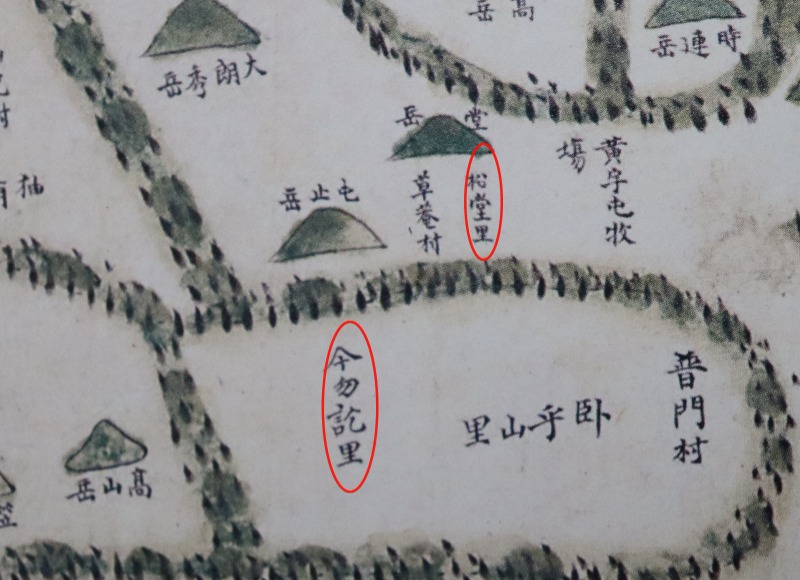 髙岳
時連岳
大朗秀岳
堂岳
黃字屯牧
場
松堂里
草菴村
屯止岳
普門村
卧乎山里
今勿訖里
髙山岳